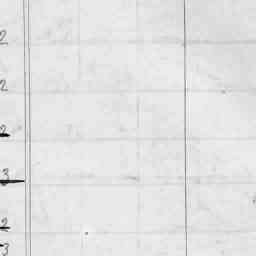 2
2
2
3
2
3